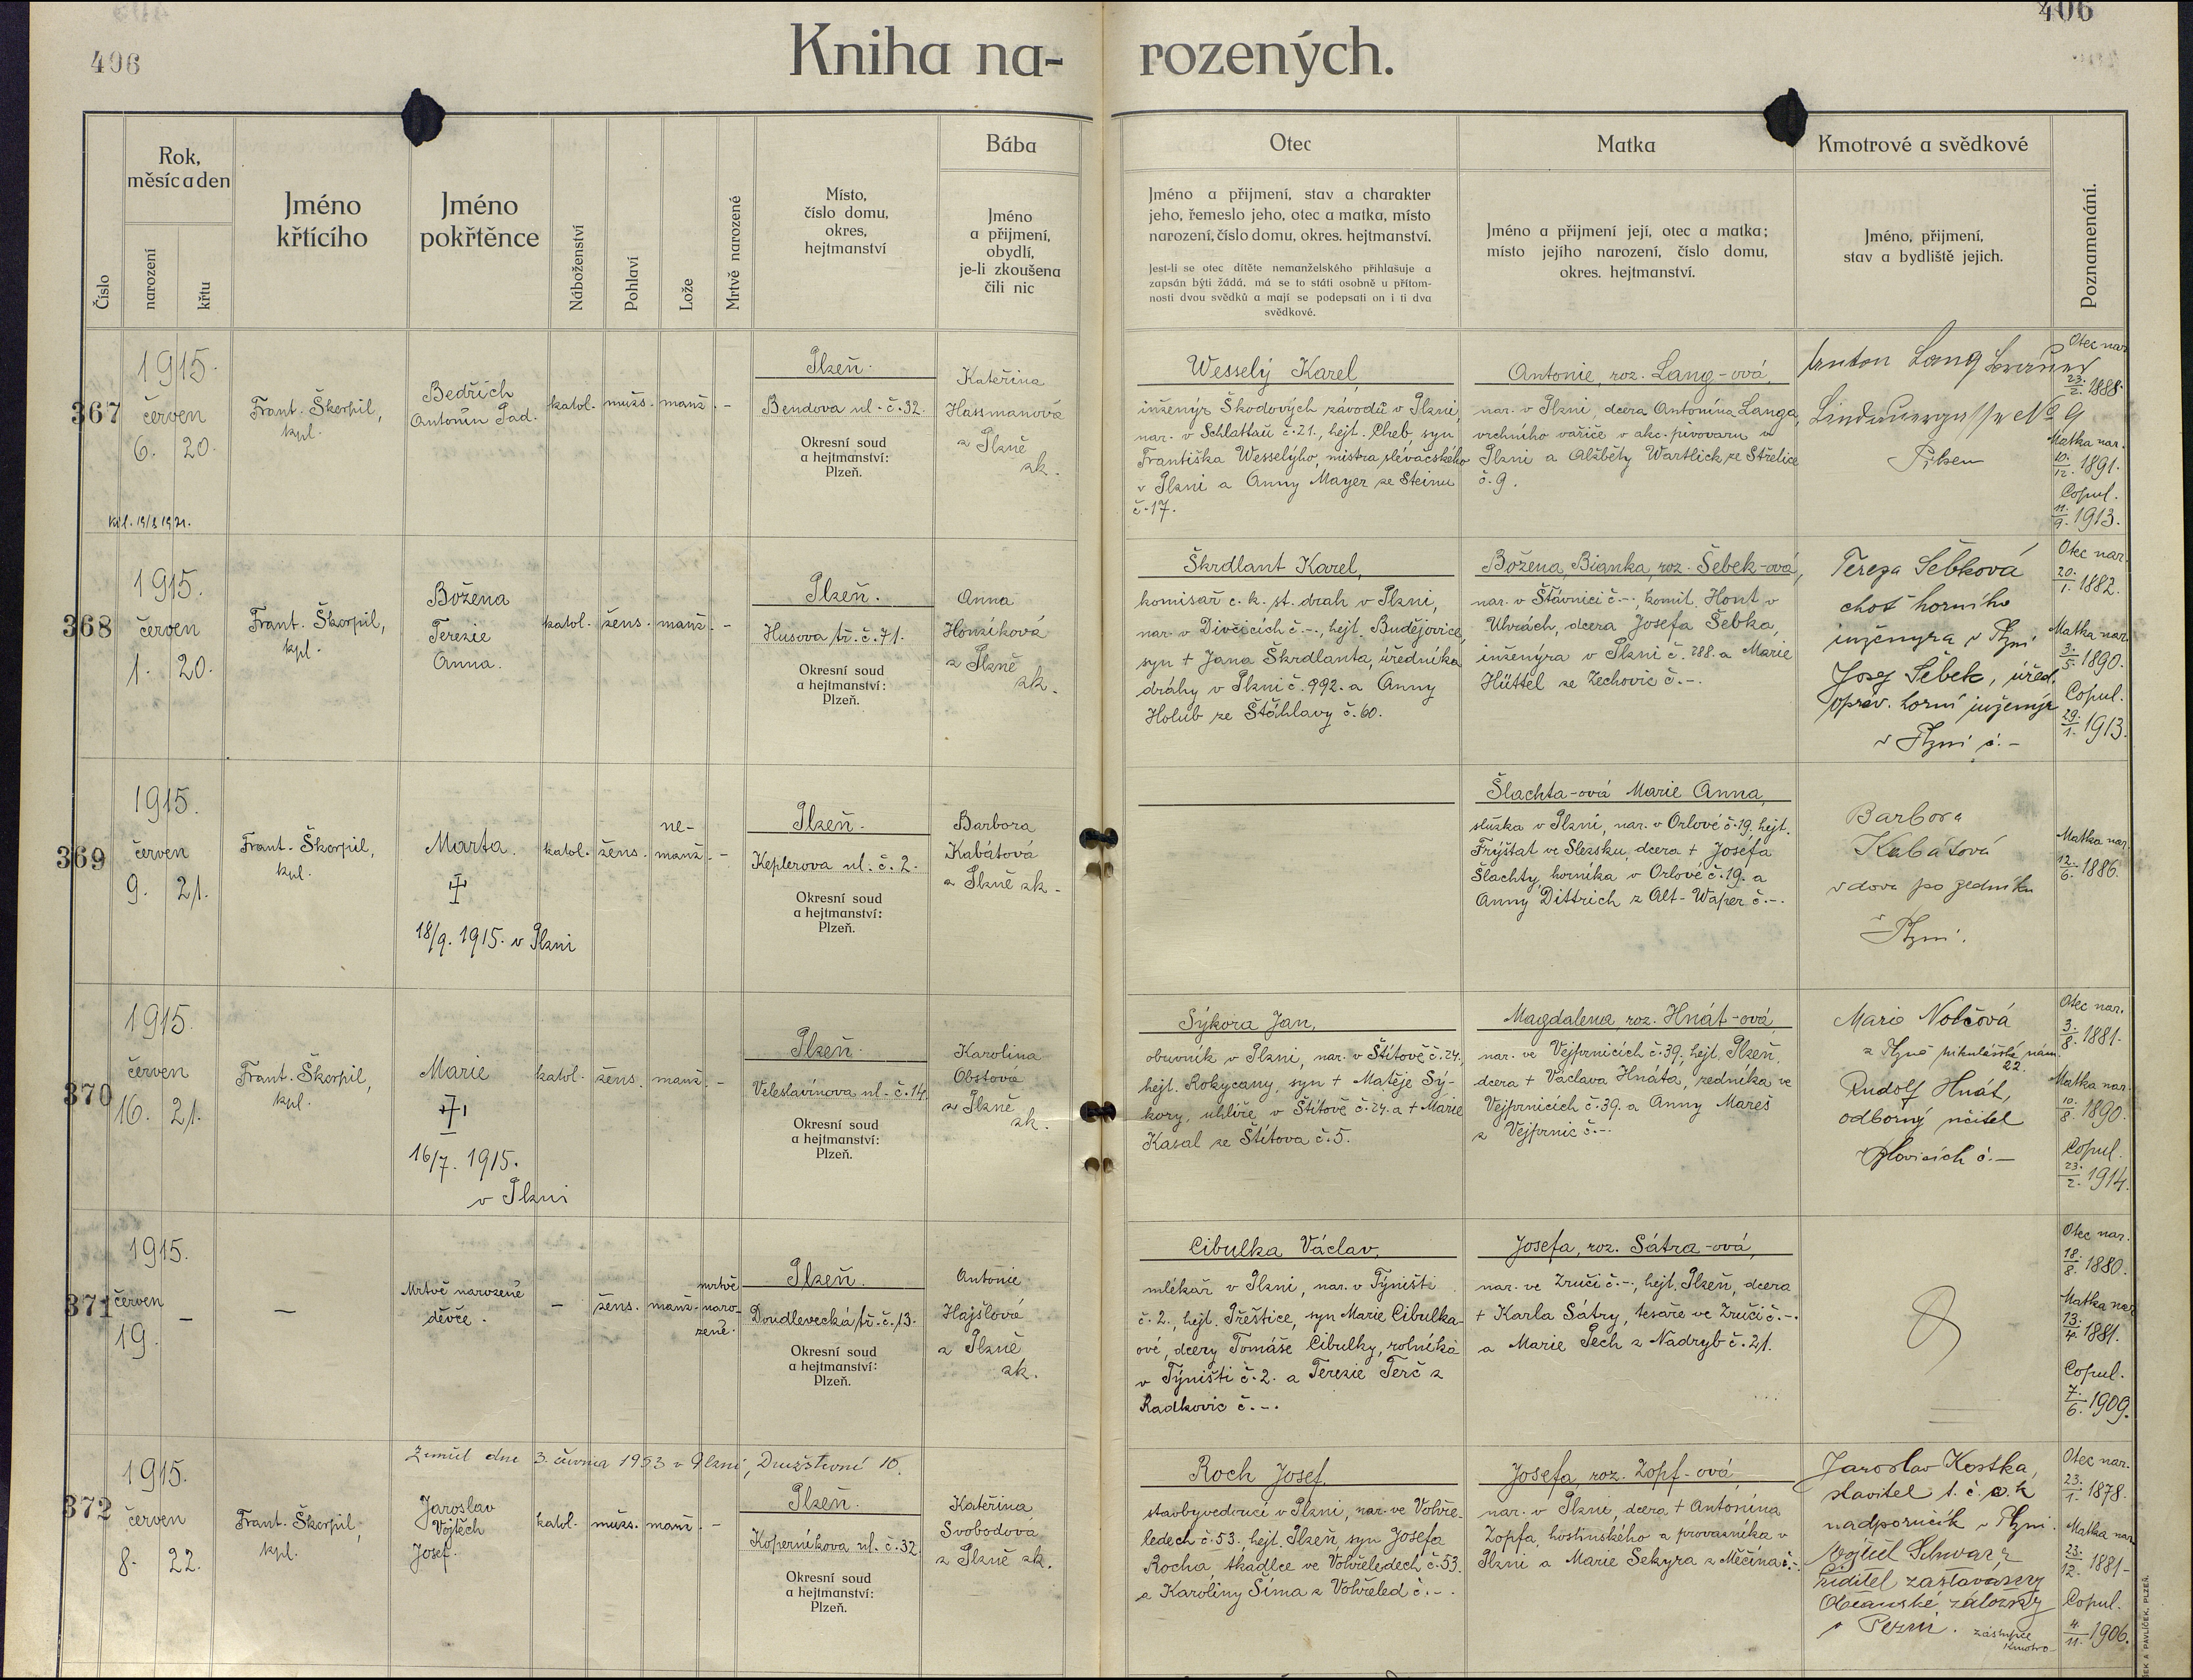 406
406
Kniha na- rozených.
Číslo
Rok, měsíc a den
narození
křtu
Jméno křtícího
Jméno pokřtěnce
Náboženství
Pohlaví
Lože
Mrtvě narozené
Místo, číslo domu, okres, hejtmanství
Bába
Jméno a přijmení, obydlí, je-li zkoušena čili nic
Otec
Jméno a přijmení, stav a charakter
jeho, řemeslo jeho, otec a matka, místo
narození, číslo domu, okres. hejtmanství.
Jest-li se otec dítěte nemanželského přihlašuje a
zapsán býti žádá, má se to státi osobně u přítom-
nosti dvou svědků a mají se podepsati on i ti dva
svědkové.
Matka
Jméno a přijmení její, otec a matka;
místo jejího narození, číslo domu,
okres. hejtmanství.
Kmotrové a svědkové
Jméno, přijmení,
stav a bydliště jejich.
Poznamenání.
367
1915.
červen
6. 20.
Frant. Škorpil,
kpl.
Bedřich
Antonín Tad.
katol. mužs. manž. -
Plzeň.
Bendova ul. č. 32.
Okresní soud
a hejtmanství:
Plzeň.
Kateřina
Hassmanová
z Plzně
zk.
Wesselý Karel,
inženýr Škodových závodů v Plzni,
nar. v Schlattaü č. 21., hejt. Cheb, syn
Františka Wesselýho, mistra slévačského
v Plzni a Anny Mayer ze Steinu
č. 17.
Antonie, roz. Lang-ová,
nar. v Plzni, dcera Antonína Langa,
vrchního vařiče v akc. pivovaru v
Plzni a Alžběty Wartlick ze Střelice
č. 9.
Anton Lang
No 9
Pilsen
Otec nar.
23./2. 1888.
Matka nar.
10./12. 1891.
Copul.
11./9. 1913.
368
1915.
červen
1. 20.
Frant. Škorpil,
kpl.
Božena
Terezie
Anna.
katol. žens. manž. -
Plzeň.
Husova tř. č. 71.
Okresní soud
a hejtmanství:
Plzeň.
Anna
Honzíková
z Plzně
zk.
Škrdlant Karel,
komisař c. k. st. drah v Plzni,
nar. v Divčicích č. -., hejt. Budějovice,
syn + Jana Škrdlanta, úředníka
dráhy v Plzni č. 992. a Anny
Holub ze Štáhlavy č. 60.
Božena, Bianka, roz. Šebek-ová,
nar. v Štávnici č. -., komit. Hont v
Uhrách, dcera Josefa Šebka,
inženýra v Plzni č. 288. a Marie
Hüttel ze Zechovic č. -.
Tereza Šebková
choť horního
inženýra v Plzni
Josef Šebek, úřed.
opráv. horní inženýr
v Plzni č. -
Otec nar.
20./1. 1882.
Matka nar.
3./5. 1890.
Copul.
29./1. 1913.
369
1915.
červen
9. 21.
Frant. Škorpil,
kpl.
Marta.
18/9. 1915. v Plzni
katol. žens. ne-
manž. -
Plzeň.
Keplerova ul. č. 2.
Okresní soud
a hejtmanství:
Plzeň.
Barbora
Kabátová
z Plzně zk.
Šlachta-ová Marie Anna,
služka v Plzni, nar. v Orlové č. 19. hejt.
Frýštat ve Slezsku, dcera + Josefa
Šlachty, horníka v Orlové č. 19. a
Anny Dittrich z Alt-Waper č. -.
Barbora
Kabátová
vdova po zedníku
v
Plzni.
Matka nar.
12./6. 1886.
370
1915.
červen
16. 21.
Frant. Škorpil,
kpl.
Marie
16/7. 1915.
v Plzni
katol. žens. manž. -
Plzeň.
Veleslavínova ul. č. 14.
Okresní soud
a hejtmanství:
Plzeň.
Karolina
Obstová
z Plzně
zk.
Sýkora Jan,
obuvník v Plzni, nar. v Štítově č. 24.
hejt. Rokycany, syn + Matěje Sý-
kory, uhlíře v Štítově č. 24. a + Marie
Kasal ze Štítova č. 5.
Magdalena, roz. Hnát-ová,
nar. ve Vejprnicích č. 39., hejt. Plzeň,
dcera + Václava Hnáta, zedníka ve
Vejprnicích č. 39. a Anny Mareš
z Vejprnic č. -.
Marie
z Plzně nám.
22.
Rudolf Hnát,
odborný učitel
č. -
Otec nar.
3./8. 1881.
Matka nar.
10./8. 1890.
Copul.
23./2. 1914.
371
1915.
červen
19. -
-
Mrtvě narozené
děvče.
- žens. manž. mrtvě
naro-
zené.
Plzeň.
Doudlevecká tř. č. 13.
Okresní soud
a hejtmanství:
Plzeň.
Antonie
Hajšlová
z Plzně
zk.
Cibulka Václav,
mlékař v Plzni, nar. v Týništi
č. 2., hejt. Přeštice, syn Marie Cibulka-
ové, dcery Tomáše Cibulky, rolníka
v Týništi č. 2. a Terezie Terč z
Radkovic č. -.
Josefa, roz. Sátra-ová,
nar. ve Zruči č. -., hejt. Plzeň, dcera
+ Karla Sátry, tesaře ve Zruči č. -.
a Marie Pech z Nadryb č. 21.
Otec nar.
18./8. 1880.
Matka nar.
13./4. 1881.
Copul.
7./6. 1909.
Zemřel dne 3. června 1953 v Plzni, Družstevní 10.
372
1915.
červen
8. 22.
Frant. Škorpil,
kpl.
Jaroslav
Vojtěch
Josef.
katol. mužs. manž. -
Plzeň.
Koperníkova ul. č. 32.
Okresní soud
a hejtmanství:
Plzeň.
Kateřina
Svobodová
z Plzně zk.
Roch Josef,
stavbyvedoucí v Plzni, nar. ve Vohře-
ledech č. 53., hejt. Plzeň, syn Josefa
Rocha, tkadlce ve Vohřeledech č. 53.
a Karoliny Šíma z Vohřeled č. -.
Josefa, roz. Zopf-ová,
nar. v Plzni, dcera + Antonína
Zopfa, hostinského a provazníka v
Plzni a Marie Sekyra z Měčína č. -.
Jaroslav Kostka,
stavitel t. č. c. k.
nadporučík v Plzni.
Vojtěch Schwarz
ředitel zastavárny
Občanské záložny
v Plzni. zástupce
kmotra
Otec nar.
23./1. 1878.
Matka nar.
23./12. 1881.
Copul.
4./11. 1906.
A PAVLÍČEK, PLZEŇ.